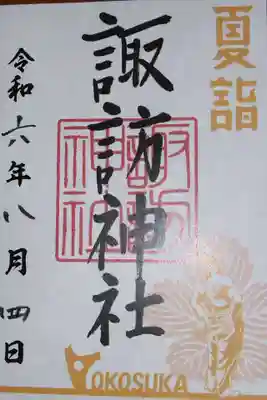 夏詣
諏訪神社
諏訪
神社
令和六年八月四日
YOKOSUKA